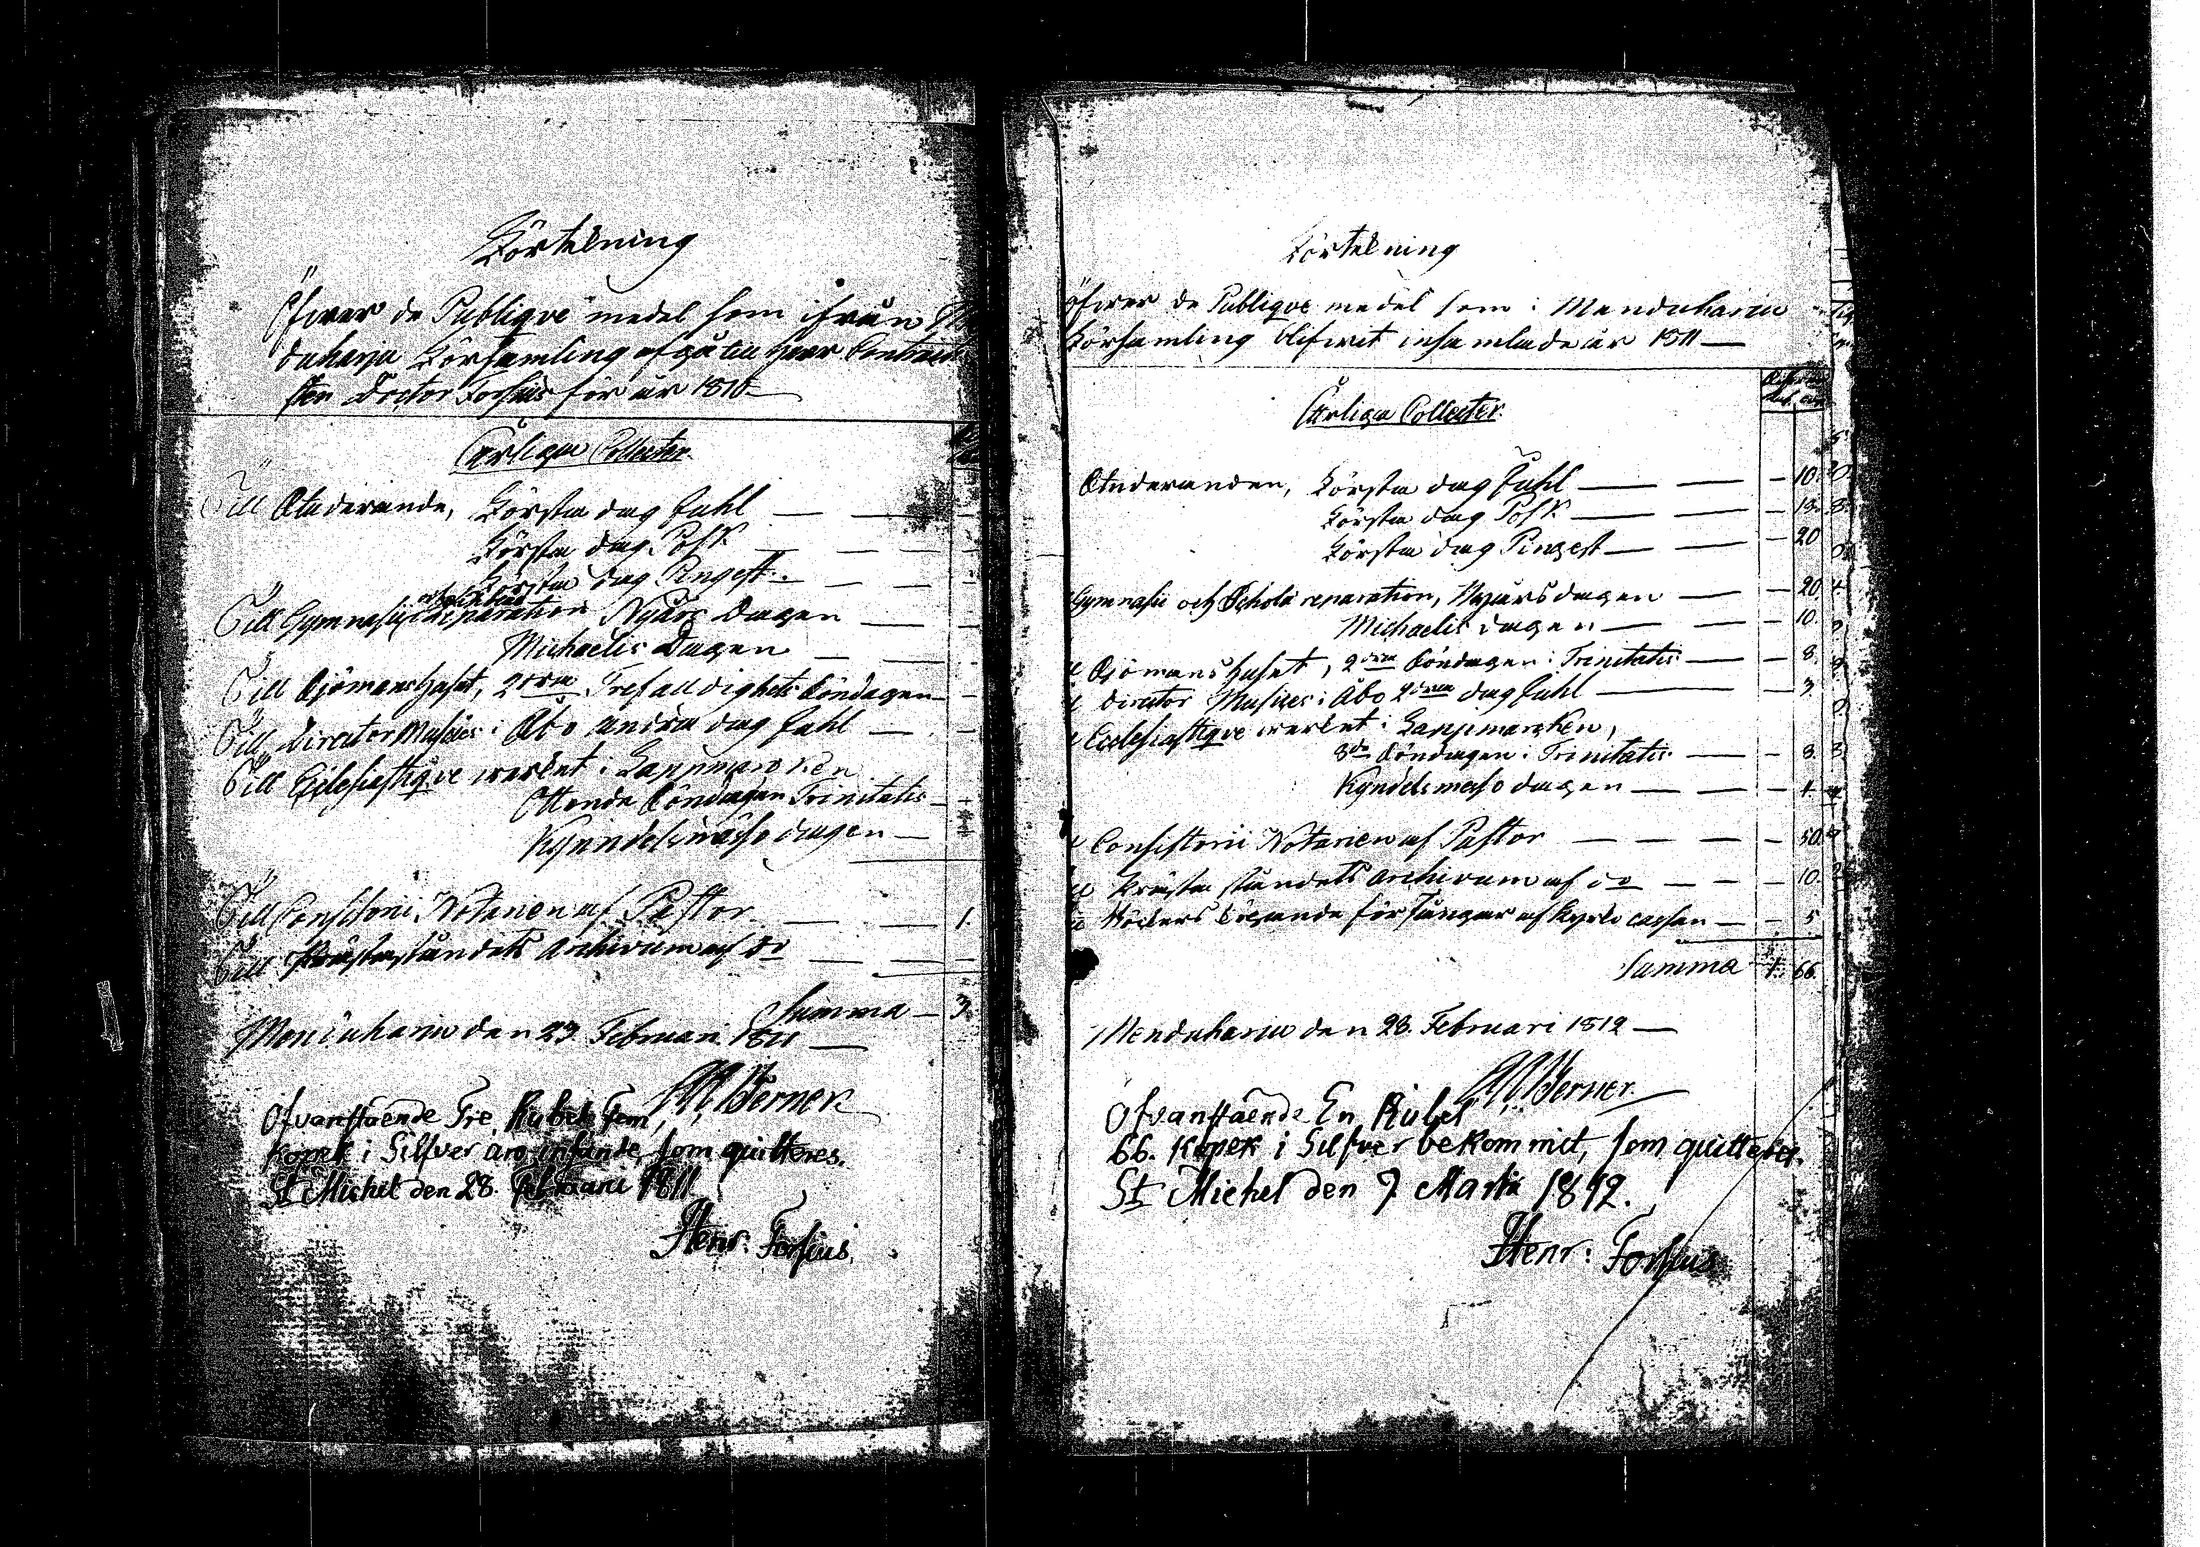 Förtekning
Öfwer de Publiqve medel som ifrån
duharju Församling afgå till Herr Contract
sten Doctor Forsius för år 1810
Årliga Collecter
Till Studerande, Första dag Juhl — —
Första dag Påsk — — —
Första dag Pingest — — —
Till Gymnasii reparation Nyårs Dagen — —
Michaelis Dagen — —
Till Sjömanshuset, 2dra Trefalldighets Söndagen —
Till Director Musices i Åbo andra dag Juhl — —
Till Ecclesiastiqve werket i Lappmarken
Ottonde Söndagen Trinitatis —
Kyndelsmässo dagen —
Till Consistorii Notarien af Pastor — — 1.
Till Prästaståndets Archivum af do — — —
Summa — 3.
Menduharju den 23. Februari 1811 —
Berner
Ofvanstående Tre Rubel Fem
Kopek i Silfver äro insände, som quitteres.
St Michel den 28. Februarii 1811
Henr. Forsius.
Förtekning
öfwer de Publiqve medel som i Menduharju
Församling blifwit insamlade år 1811 —
Årliga Collecter.
Studeranden, Första dag Juhl — — — 10.
Första dag Påsk — — — 18.
Första dag Pingest — — — 20
Gymnasii och Schola reparation, Nyårsdagen — — — 20.
Michaelis dagen — — — 10.
Sjömanshuset, 2dra Söndagen i Trinitatis — — 8.
Director Musices i Åbo 2dra dag Juhl — — 3.
Ecclesiastiqve werket i Lappmarken,
8de Söndagen i Trinitatis — — 8.
Kyndelsmässo dagen — — — 4.
Consistorii Notarien af Pastor — — — — 50.
Prästa ståndets Archivum af do — — — — 10.
af Kyrko cassan — — 5
Summa 1. 66.
Menduharju den 28. Februari 1812 —
Berner.
Ofvanstående En Rubel
66. Kopek i Silfver bekommit, som quitteras.
St Michel den 7 Martii 1812.
Henr: Forsius